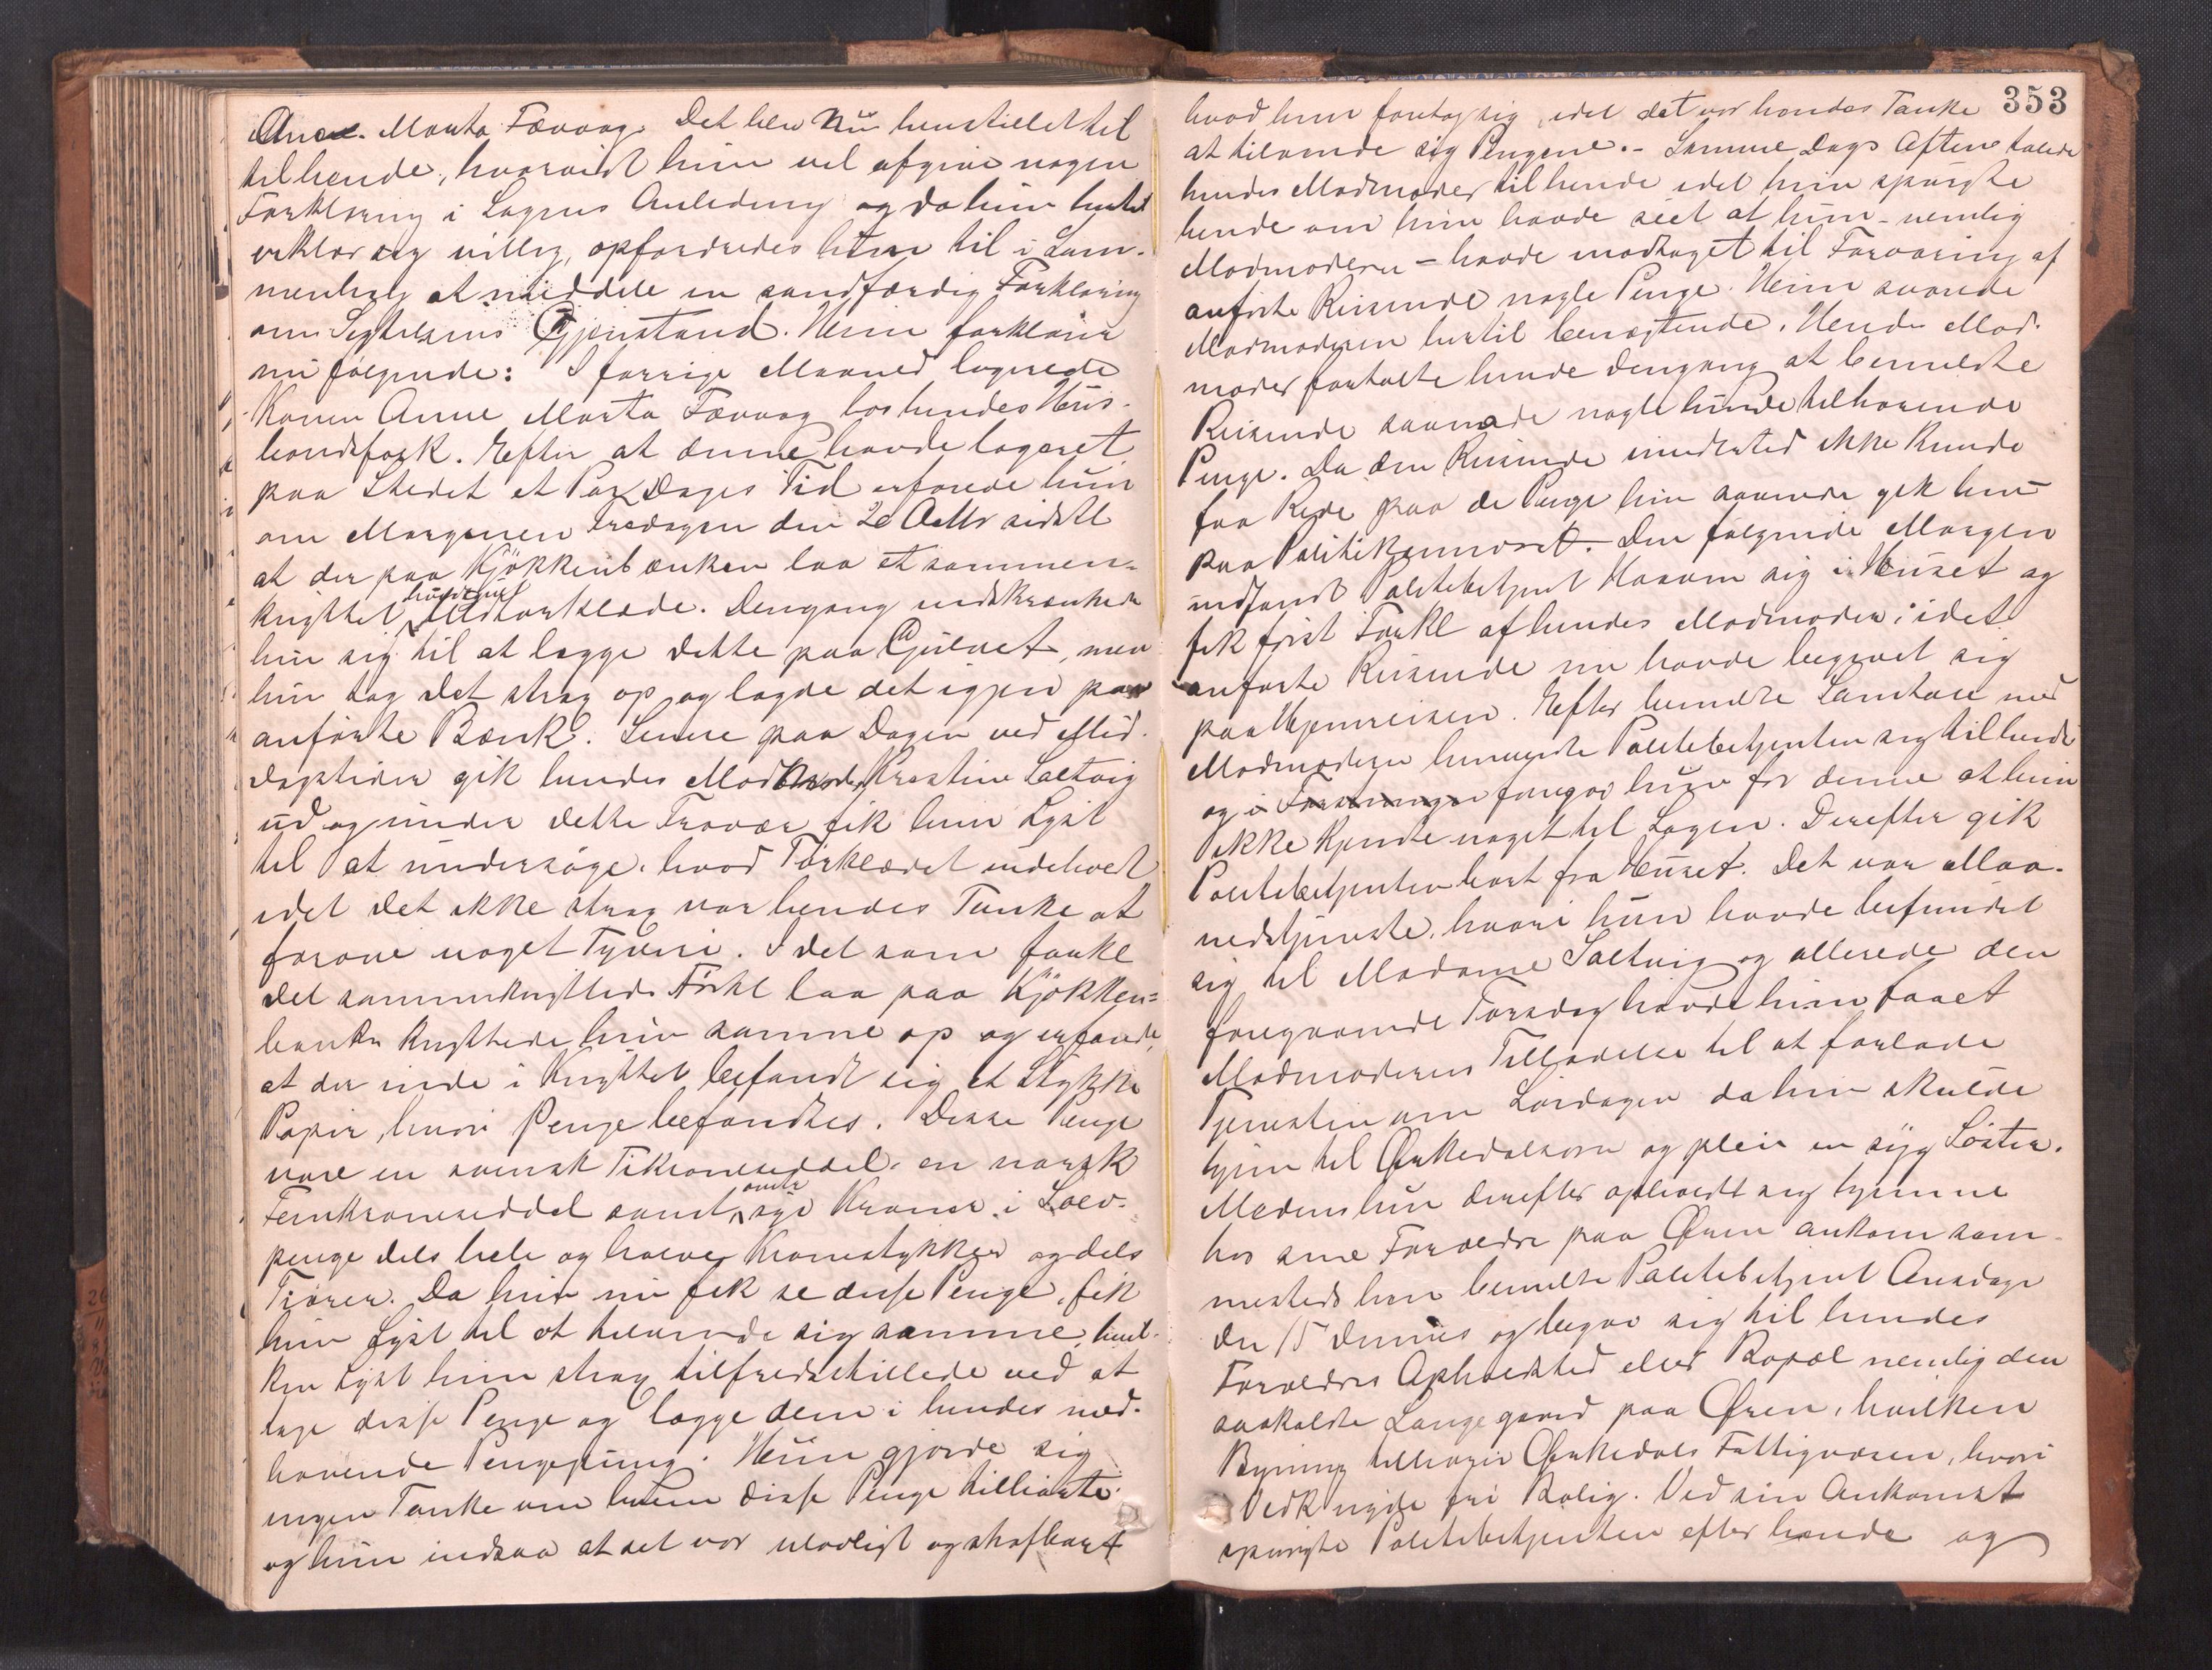 Anne Marta Fævaag. Det blev nu henstillet til
til hende, hvorvidt hun vil afgive nogen
Forklaring i Sagens Anledning og da hun hertil
erklær sig villig, opfordredes hun til i Sam-
menhæng at meddele en sandfærdig Forklaring
om Sigtelsens Gjenstand. Hun forklarer
nu følgende: I forrige Maaned logerede
Konen Anne Marta Fævaag hos hendes Hus-
bondsfolk. Efter at denne havde logeret
paa Stedet et Par Dages Tid erfarede hun
om Morgenen Fredagen den 2 Octbr sidstl
at der paa Kjøkkenbænken laa et sammen-
knyttet Tørklæde. Dengang
hun sig til at lægge dette paa Gulvet, men
hun tog det strax op og lagde det igjen paa
anførte Bænk. Senere paa Dagen ved Mid-
dagstider gik hendes Kristine Saltvig
ud og under dette Fravær fik hun Lyst
til at undersøge, hvad Tørklædet indeholdt
idet det ikke strax var hendes Tanke at
forøve noget Tyveri. I det som forkl
det sammenknyttede Tørkl laa paa Kjøkken-
bænken knyttede hun samme op og erfarede,
at der inde i Knyttet befandt sig et Stykke
Papir, hvori Penge befandtes. Disse Penge
vare en svensk Tikroneseddel, en norsk
Femkroneseddel samt syv Kroner i Sølv-
penge dels hele og halve Kronestykker og dels
Tiører. Da hun nu fik se disse Penge, fik
hun Lyst til at tilvende sig samme, hvil-
ken Lyst hun strax tilfredsstillede ved at
tage disse Penge og lægge dem i hendes med-
havende Pengepung. Hun gjorde sig
ingen Tanke om hvem disse Penge tilhørte
og hun indsaa at det var ulovligt og strafbart
353
hvad hun foretog sig, idet det var hendes Tanke
at tilvende sig Pengene. - Samme Dags Aften talede
hendes Madmoder til hende idet hun spurgte
hende om hun havde seet at hun - nemlig
Madmoderen - havde modtaget til Forvaring af
anførte Reisende nogle Penge. Hun svarede
Madmoderen hertil benegtende. Hendes Mad-
moder fortalte hende dengang at bemeldte
Reisende savnede nogle hende tilhørende
Penge. Da den Reisende imidlertid ikke kunde
faa Rede paa de Penge hun savnede gik hun
paa Politikammeret. Den følgende Morgen
indfandt Politibetjent sig i Huset og
fik først Forkl af hendes Madmoder, idet
anførte Reisende nu havde begivet sig
paa Hjemreisen. Efter bemeldte Samtale med
Madmoderen henvendte Politibetjenten sig til hende
og foregav hun for denne at hun
ikke kjendte noget til Sagen. Derefter gik
Politibetjenten bort fra Huset. Det var Maa-
nedstjeneste, hvori hun havde befundet
sig til Madame Saltvig og allerede den
foregaaende Torsdag havde hun faaet
Madmoderens Tilladelse til at forlade
Tjenesten om Lørdagen da hun skulde
hjem til Ørkedalsøren og pleie en syg Søster.
Medens hun derefter opholdt sig hjemme
hos sine Forældre paa Øren ankom sam-
mesteds hen bemeldte Politibetjent Onsdage
den 15 dennes og begav sig til hendes
Forældres Opholdssted eller Bopæl nemlig den
saakaldte Langegaard paa Øren, hvilken
Bygning tilhører Ørkedals Fattigvæsen, hvori
Vedk nyde fri Bolig. Ved sin Ankomst
spurgte Politibetjenten efter hende og